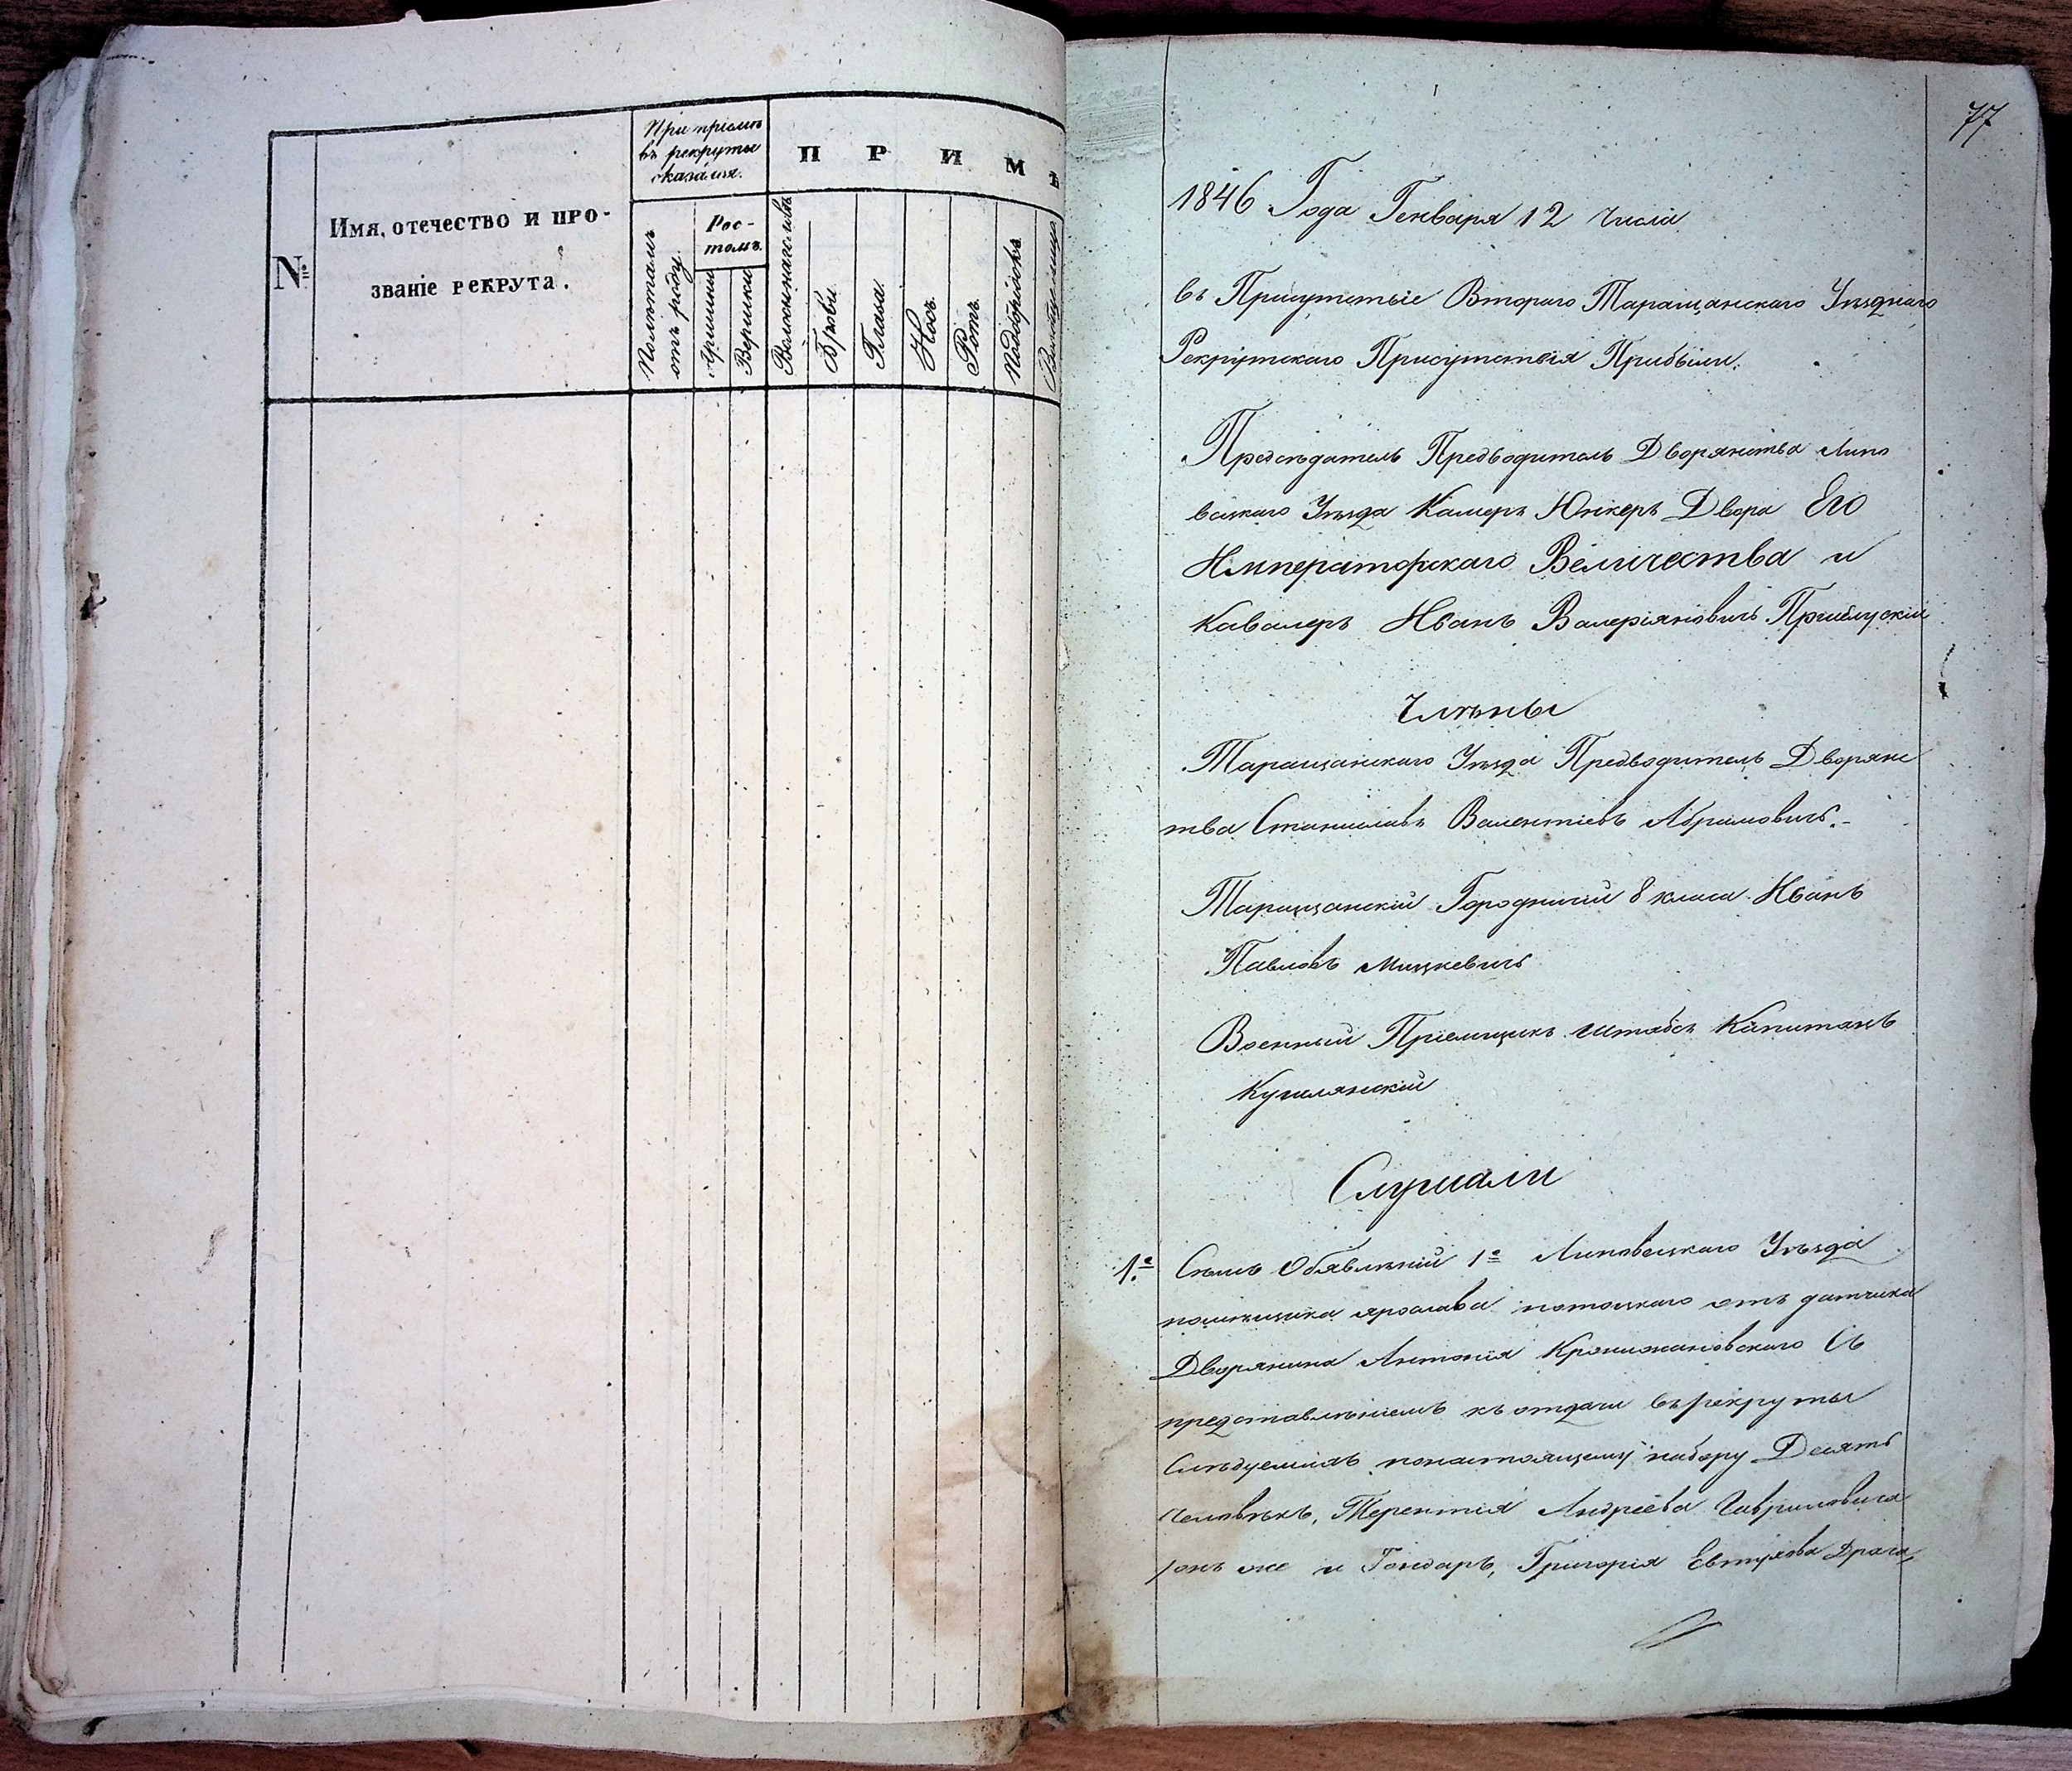 №
Имя, отечество и про-
званіе рекрута.
При пріемѣ
въ рекруты
оказался.
Полѣтамъ
отъ роду
Рос-
томъ.
Аршины
Вершки
П Р И М Ѣ
Брови
Глаза
Носъ
Ротъ
Подбородокъ
77
1846 Года Генваря 12 Числа
въ Присутствіе Втораго Таращанскаго Уѣзднаго
Рекрутскаго Присутствія Прибыли.
Предсѣдатель Предводитель Дворянства Липо
вецкаго Уѣзда Камеръ Юнкеръ Двора Его
Императорскаго Величества и
Кавалеръ Иванъ Валеріяновичъ
Члѣны
Таращанскаго Уѣзда Предводитель Дворянс
тва Станиславъ Валентіевъ Абрамовичъ.-
Таращанскій Городничій 8 класа Иванъ
Павловъ Мицкевичъ
Военный Пріемщикъ Штабсъ Капитанъ
Слушали
1.е Обявлѣній 1е Липовецкаго Уѣзда
помѣщика ярослава потоцкаго отъ датчика
Дворянина Антонія Кржижановскаго Съ
представлѣніемъ къ отдачи въ рекруты
Слѣдуемихъ понастоящему набору Десять
Человѣкъ, Терентія Андреева Гавриловича
онъ же и Гондаръ, Григорія Евтухова Драга,